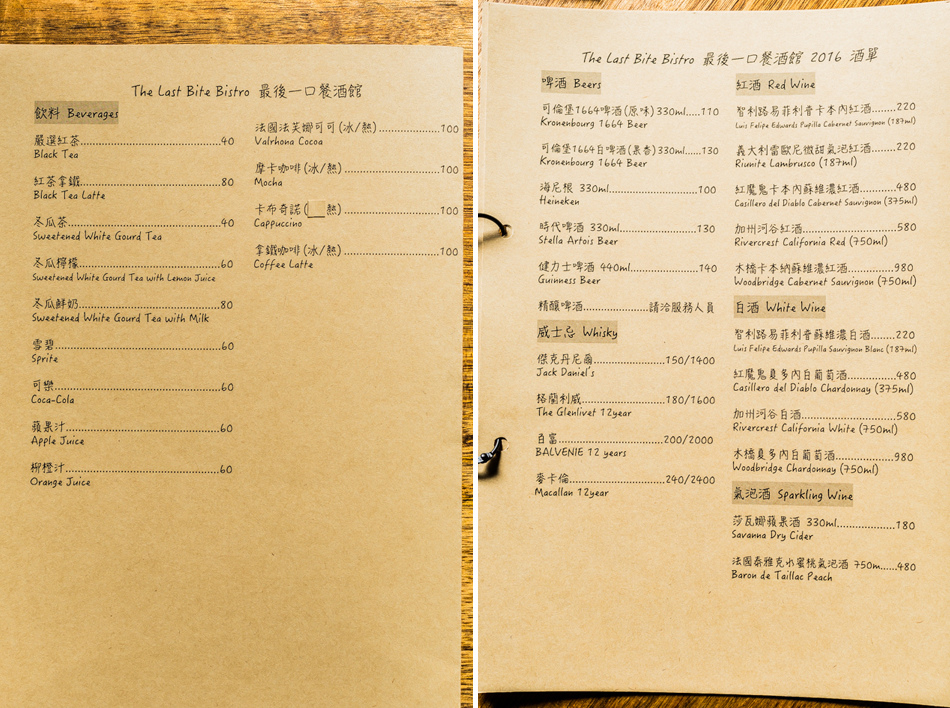 The Last Bite Bistro 最後一口餐酒館
飲料 Beverages
嚴選紅茶..........40
Black Tea
紅茶拿鐵..........80
Black Tea Latte
冬瓜茶..........40
Sweetened White Gourd Tea
冬瓜檸檬..........60
Sweetened White Gourd Tea with Lemon Juice
冬瓜鮮奶..........80
Sweetened White Gourd Tea with Milk
雪碧..........60
Sprite
可樂..........60
Coca-Cola
蘋果汁..........60
Apple Juice
柳橙汁..........60
Orange Juice
法國法芙娜可可(冰/熱)..........100
Valrhona Cocoa
摩卡咖啡(冰/熱)..........100
Mocha
卡布奇諾(熱)..........100
Cappuccino
拿鐵咖啡(冰/熱)..........100
Coffee Latte
The Last Bite Bistro 最後一口餐酒館 2016 酒單
啤酒 Beers
可倫堡1664啤酒(原味)330ml.....110
Kronenbourg 1664 Beer
可倫堡1664白啤酒(果香)330ml.....130
Kronenbourg 1664 Beer
海尼根 330ml..........100
Heineken
時代啤酒 330ml..........130
Stella Artois Beer
健力士啤酒 440ml..........140
Guinness Beer
精釀啤酒..........請洽服務人員
威士忌 Whisky
傑克丹尼爾..........150/1400
Jack Daniel's
格蘭利威..........180/1600
The Glenlivet 12year
百富..........200/2000
BALVENIE 12 years
麥卡倫..........240/2400
Macallan 12year
紅酒 Red Wine
智利路易菲利普卡本內紅酒.....220
Luis Felipe Edwards Pupilla Cabernet Sauvignon (187ml)
義大利雷歐尼微甜氣泡紅酒.....220
Riunite Lambrusco (187ml)
紅魔鬼卡本內蘇維濃紅酒..........480
Casillero del Diablo Cabernet Sauvignon (375ml)
加州河谷紅酒..........580
Rivercrest California Red (750ml)
木橋卡本納蘇維濃紅酒..........980
Woodbridge Cabernet Sauvignon (750ml)
白酒 White Wine
智利路易菲利普蘇維濃白酒.....220
Luis Felipe Edwards Pupilla Sauvignon Blanc (187ml)
紅魔鬼夏多內白葡萄酒..........480
Casillero del Diablo Chardonnay (375ml)
加州河谷白酒..........580
Rivercrest California White (750ml)
木橋夏多內白葡萄酒..........980
Woodbridge Chardonnay (750ml)
氣泡酒 Sparkling Wine
莎瓦娜蘋果酒 330ml..........180
Savanna Dry Cider
法國泰雅克水蜜桃氣泡酒 750m.....480
Baron de Taillac Peach